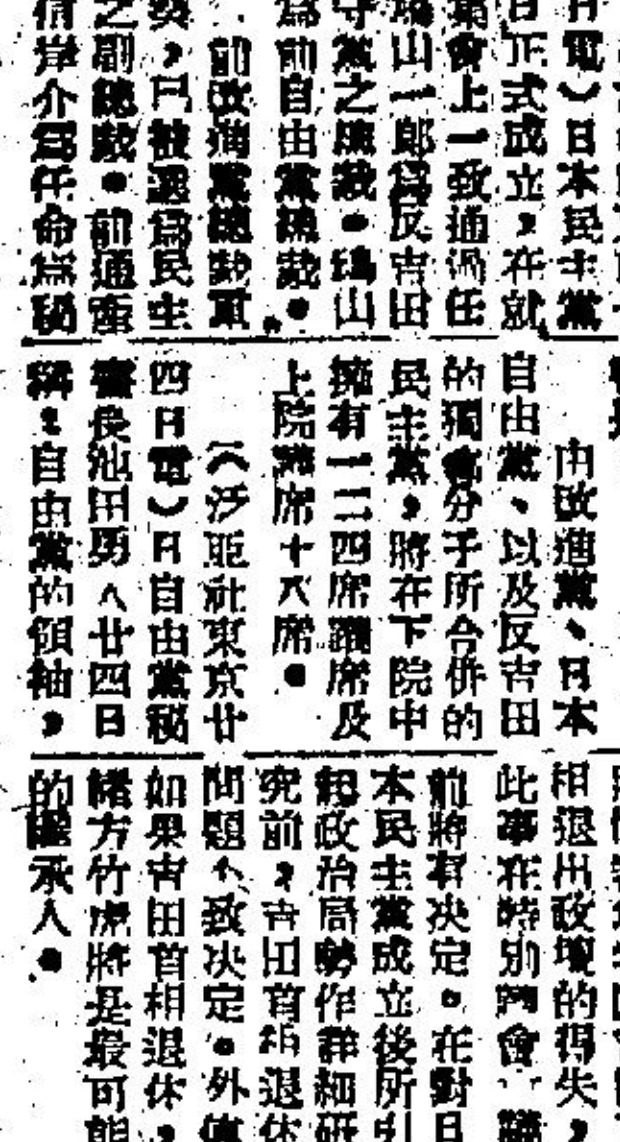 日電）日本民主黨
日正式成立，在就
會上一致通過任
山一郎爲反吉田
守黨之總裁。鳩山
爲前自由黨總裁。
前改進黨總裁重
，已被選爲民主
之副總裁。前通
信岸介爲任命爲秘
由改進黨、日本
自由黨、以及反吉田
的獨會分子所合併的
民主黨，將在下院中
擁有一二四席議席及
上院議席十八席。
（法新社東京廿
四日電）日自由黨秘
書長池田勇人廿四日
稱：自由黨的領袖，
相退出政壇的得失，
此事在特別國會 議
前將有决定。在對日
本民主黨成立後所引
起政治局勢作詳細研
究前，吉田首相退休
問題不致决定。外傳
如果吉田首相退休，
緒方竹虎將是最可能
的繼承人。